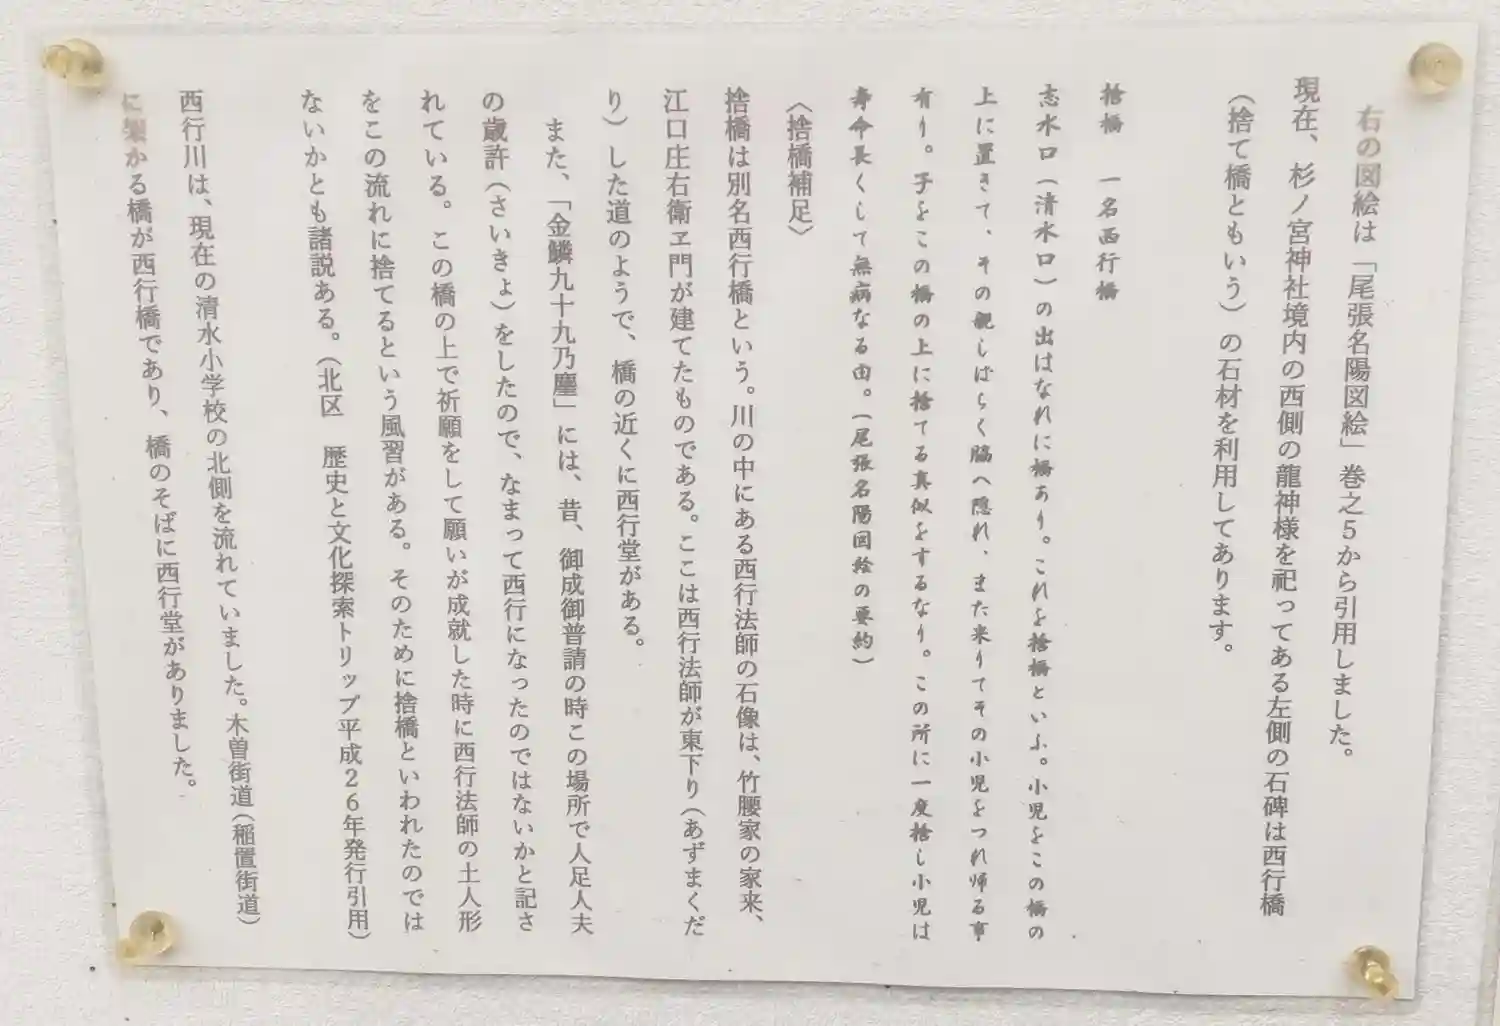 右の図絵は「尾張名陽図絵」巻之5から引用しました。
現在、杉ノ宮神社境内の西側の龍神様を祀ってある左側の石碑は西行橋
(捨て橋ともいう)の石材を利用してあります。
捨橋　一名西行橋
志水口(清水口)の出はなれに橋あり。これを捨橋といふ。小児をこの橋の
上に置きて、その親しばらく脇へ隠れ、また来りてその小児をつれ帰る事
有り。子をこの橋の上に捨てる真似をするなり。この所に一度捨し小児は
寿命長くして無病なる由。(尾張名陽図絵の要約)
〈捨橋補足〉
捨橋は別名西行橋という。川の中にある西行法師の石像は、竹腰家の家来、
江口庄右衛ヱ門が建てたものである。ここは西行法師が東下り(あずまくだ
り)した道のようで、橋の近くに西行堂がある。
また、「金鱗九十九乃塵」には、昔、御成御普請の時この場所で人足人夫
の歳許(さいきょ)をしたので、なまって西行になったのではないかと記さ
れている。この橋の上で祈願をして願いが成就した時に西行法師の土人形
をこの流れに捨てるという風習がある。そのために捨橋といわれたのでは
ないかとも諸説ある。(北区　歴史と文化探索トリップ平成26年発行引用)
西行川は、現在の清水小学校の北側を流れていました。木曽街道(稲置街道)
に架かる橋が西行橋であり、橋のそばに西行堂がありました。